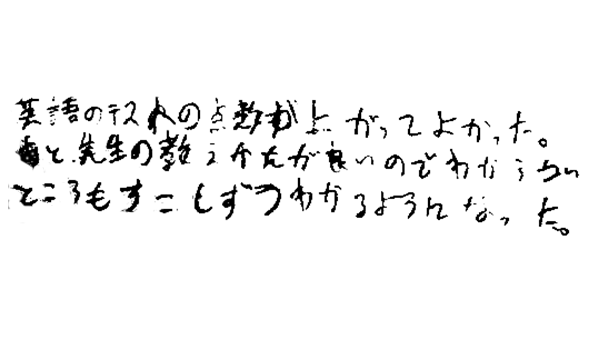 英語のテストの点数が上がってよかった。
あと、先生の教えかたが良いのでわからない
ところもすこしずつわかるようになった。